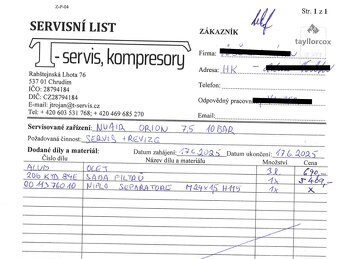 Z-P-04
Str. 1 z 1
SERVISNÍ LIST
ZÁKAZNÍK
tayllorcox
T - servis, kompresory
Firma:
Adresa: HK
Telefon:
Odpovědný pracovník:
Rabštejnská Lhota 76
537 01 Chrudim
IČO: 28794184
DIČ: CZ28794184
E-mail: jtrojan@t-servis.cz
Tel: + 420 603 531 768; + 420 469 685 270
Servisované zařízení: NUAIR ORION 7,5 10BAR
Požadovaná činnost: SERVIS + REVIZE
Dodané díly a materiál: Datum zahájení: 17.6.2025 Datum ukončení: 17.6.2025
Číslo dílu Název dílu a materiálu Množství Cena
OLEJ 3,8 690,-
SADA FILTRŮ 1x
NIPL SEPARÁTORU M24x15 H115 1x x